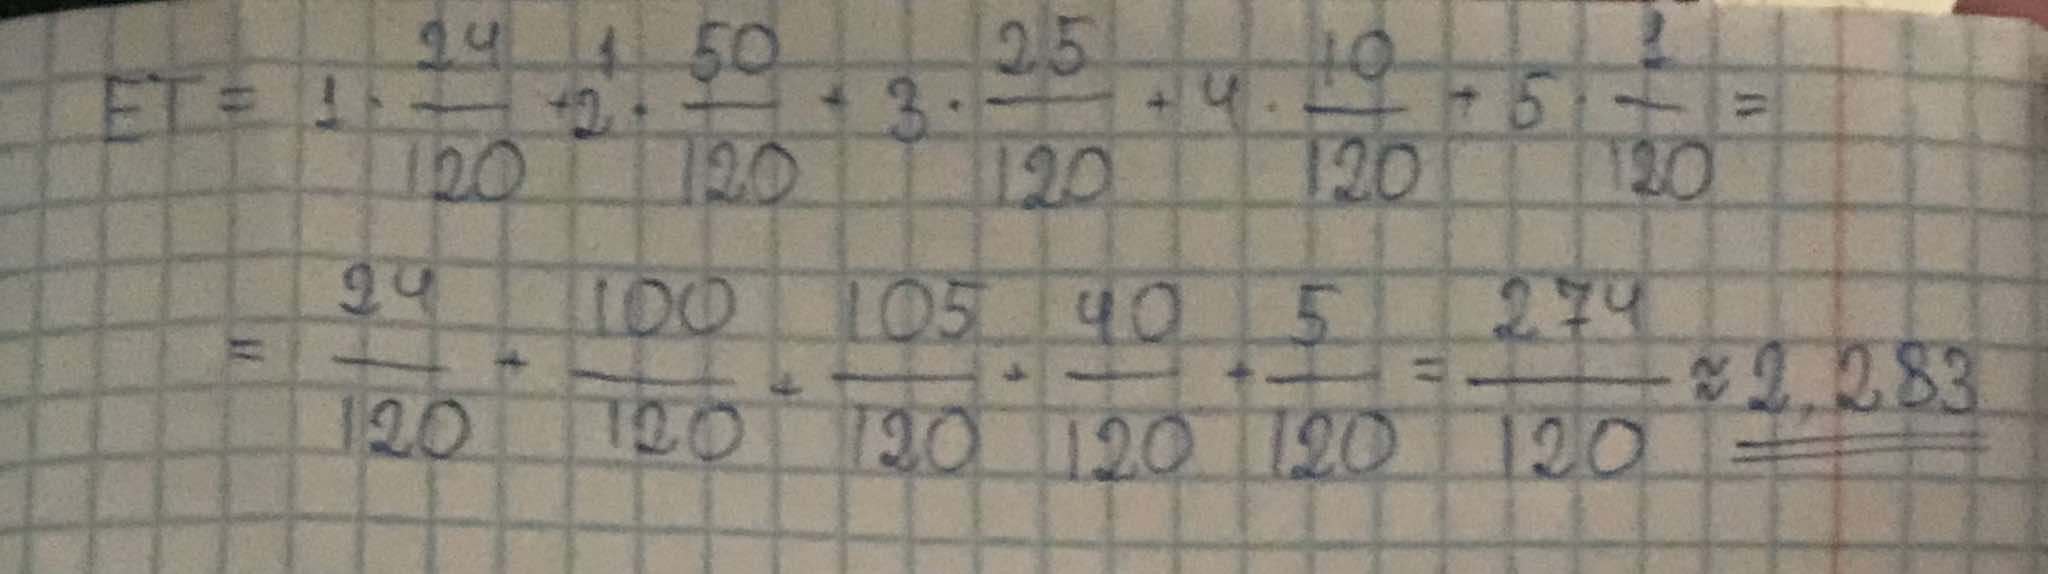 ET = 1 · 24/120 + 2 · 50/120 + 3 · 25/120 + 4 · 10/120 + 5 · 1/120 =
= 24/120 + 100/120 + 105/120 + 40/120 + 5/120 = 274/120 ≈ 2,283